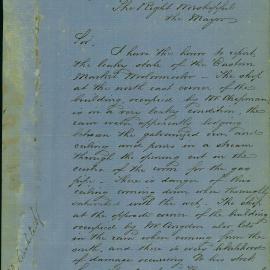 The Right Worshipful
the Mayor
Sir,
I have the honor to report
the leaky state of the Eastern
Market Woolloomooloo - The shop
at the north east corner of the
building occupied by Mr Chapman
is in a very leaky condition, the
rain water apparently lodging
between the galvanized iron and
ceiling and pours in a stream
through the opening cut in the
centre of the room for the gas
pipe - There is danger of this
ceiling coming down when thoroughly
saturated with the wet. The shop
at the opposite corner of the building
occupied by Mr also lets
in the rain when coming from the
south, and there is every likelihood
of damage occurring to his stock